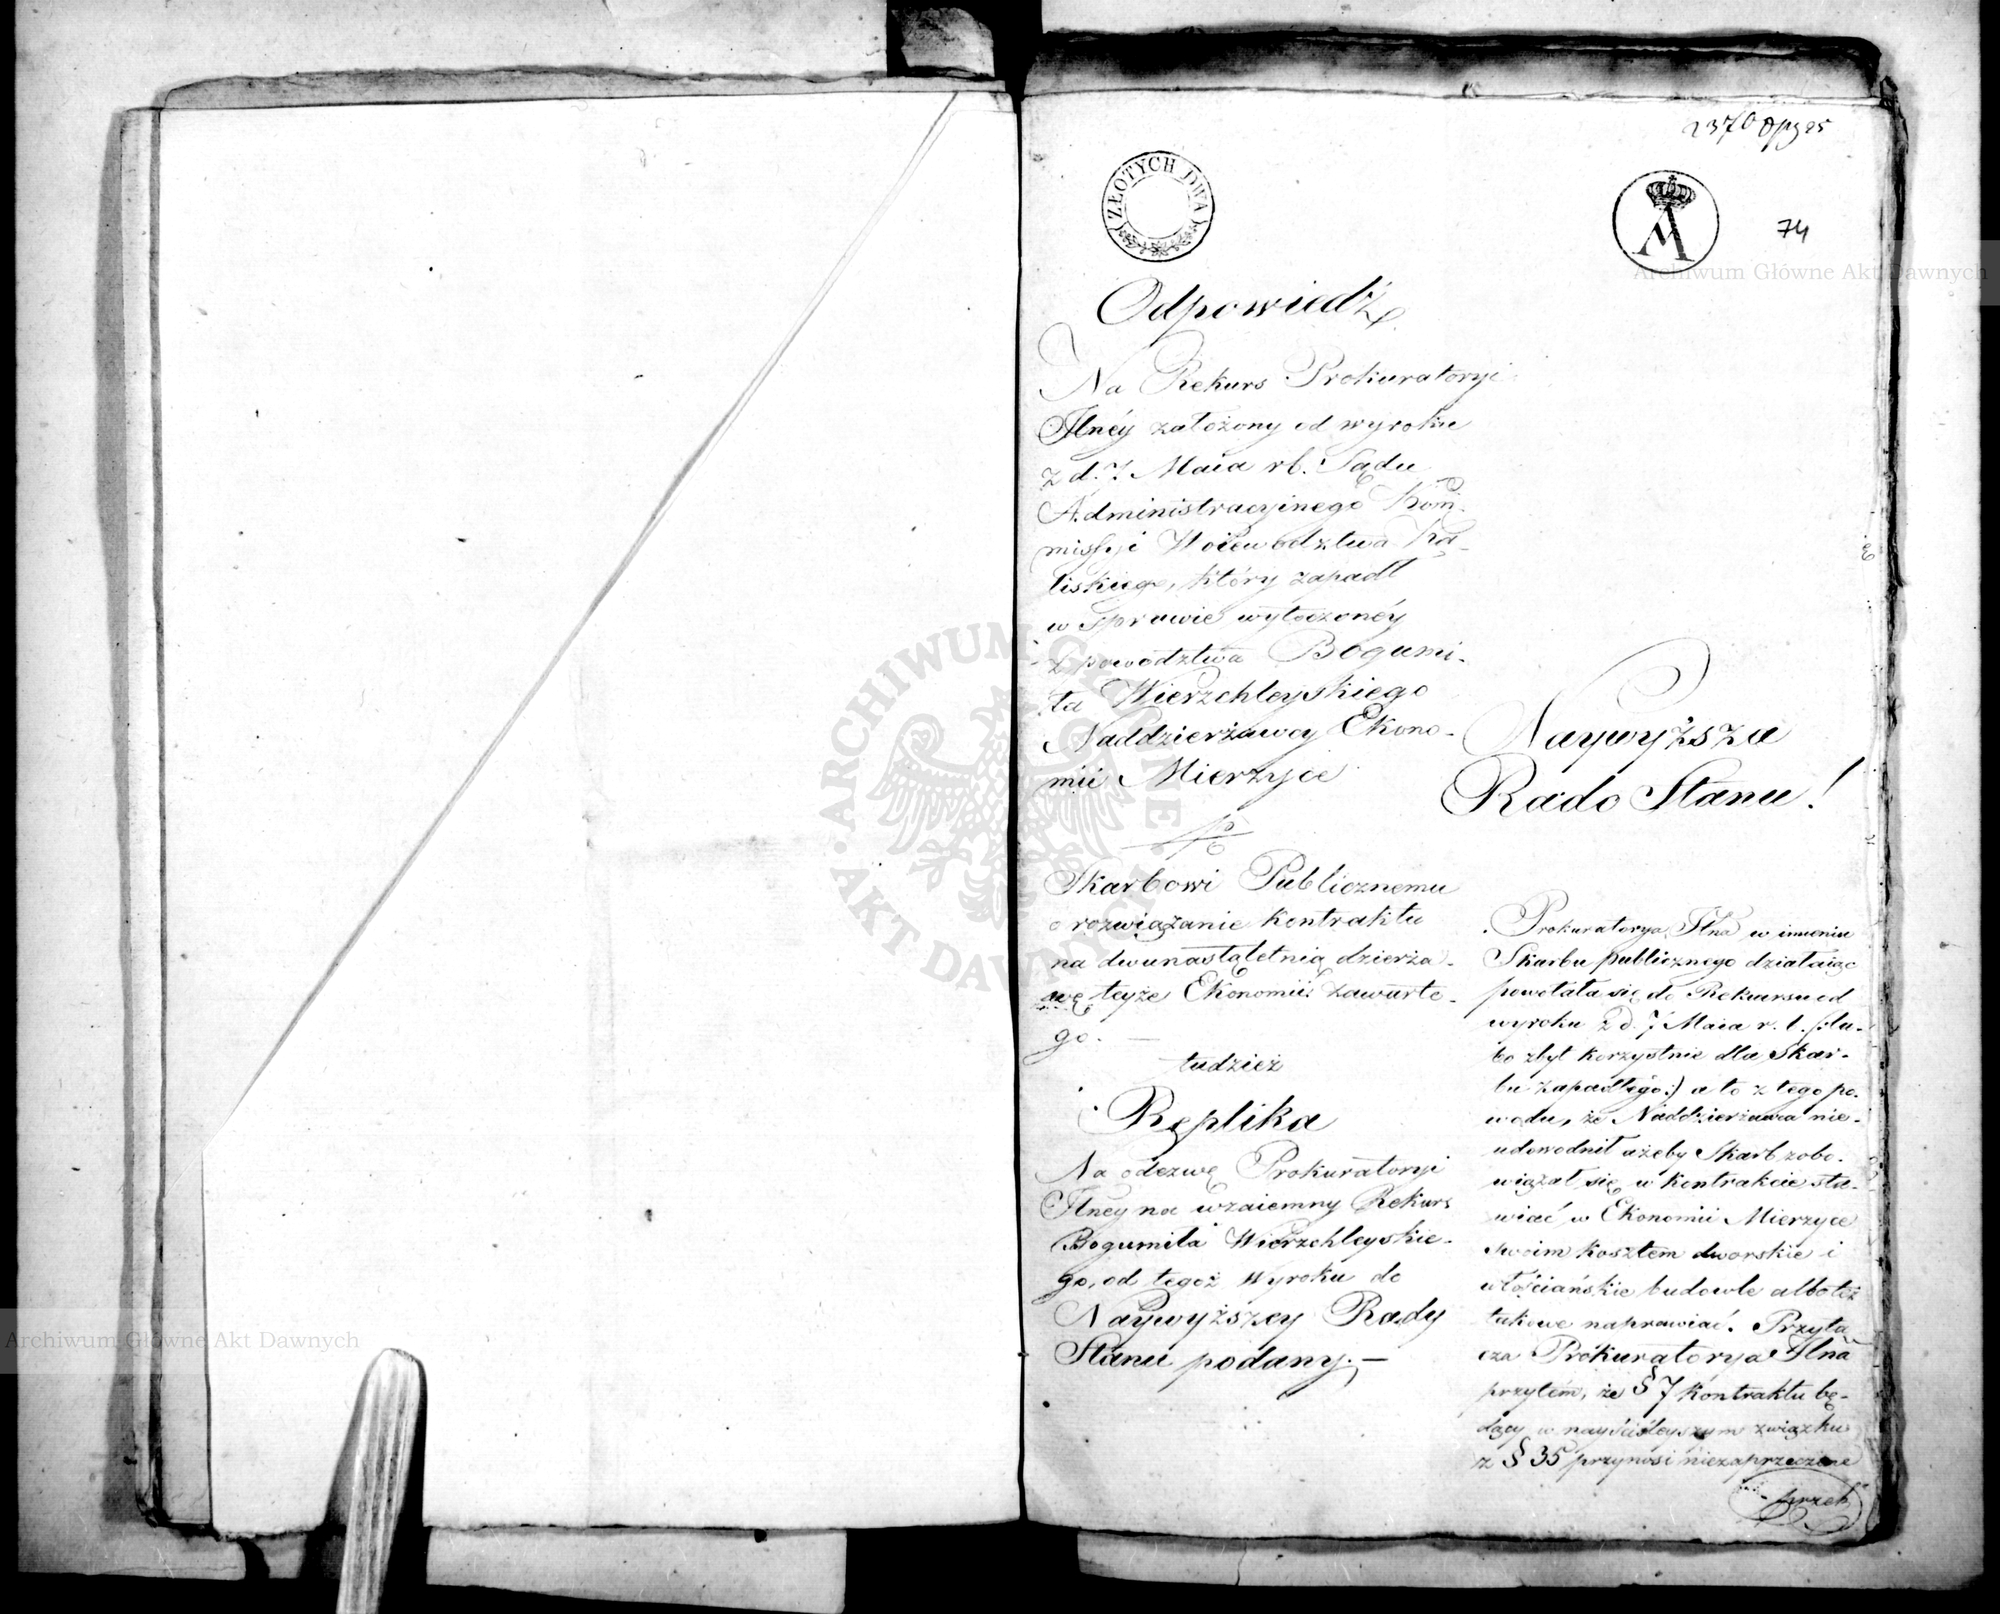 ZŁOTYCH DWA
74
Archiwum Główne Akt Dawnych
Odpowiedź
Na Rekurs Prokuratoryi
Jlnéy założony od wyroku
z d. 7. Maia rb. Sądu
Administracyjnego Kom̃-
missyi Woiewodztwa Ka-
liskiego, który zapadł
w Sprawie wytoczonéy
z powodztwa Bogumi-
ła Wierzchleyskiego
Naddzierżawcy Ekono-
mii Mierzyce
Skarbowi Publicznemu
o rozwiązanie Kontraktu
na dwunastoletnią dzierża-
wę teyże Ekonomii zawarte-
go. —
tudzież
Replika
Na odezwę Prokuratoryi
Jlney na wzaiemny Rekurs
Bogumiła Wierzchleyskie-
go, od tegoż Wyroku do
Naywyższey Rady
Stanu podany. —
Naywyższa
Rado Stanu!
Prokuratorya Jlna w imieniu
Skarbu publicznego działaiąc
powołała się do Rekursu od
wyroku z d. 7 Maia r. b. /:lu-
bo zbyt korzystnie dla Skar-
bu zapadłego:/ a to z tego po-
wodu, że Naddzierżawca nie-
udowodnił ażeby Skarb zobo-
wiązał się w kontrakcie sta-
wiać w Ekonomii Mierzyce
swoim kosztem dworskie i
włościańskie budowle albo też
takowe naprawiać. Przyta-
cza Prokuratorya Jlna
przytém, że § 7 Kontraktu bę-
dący w nayściśleyszym związku
z § 35 przynosi niezaprzeczone
przek
ARCHIWUM GŁÓWNE AKT DAWNYCH
Archiwum Główne Akt Dawnych